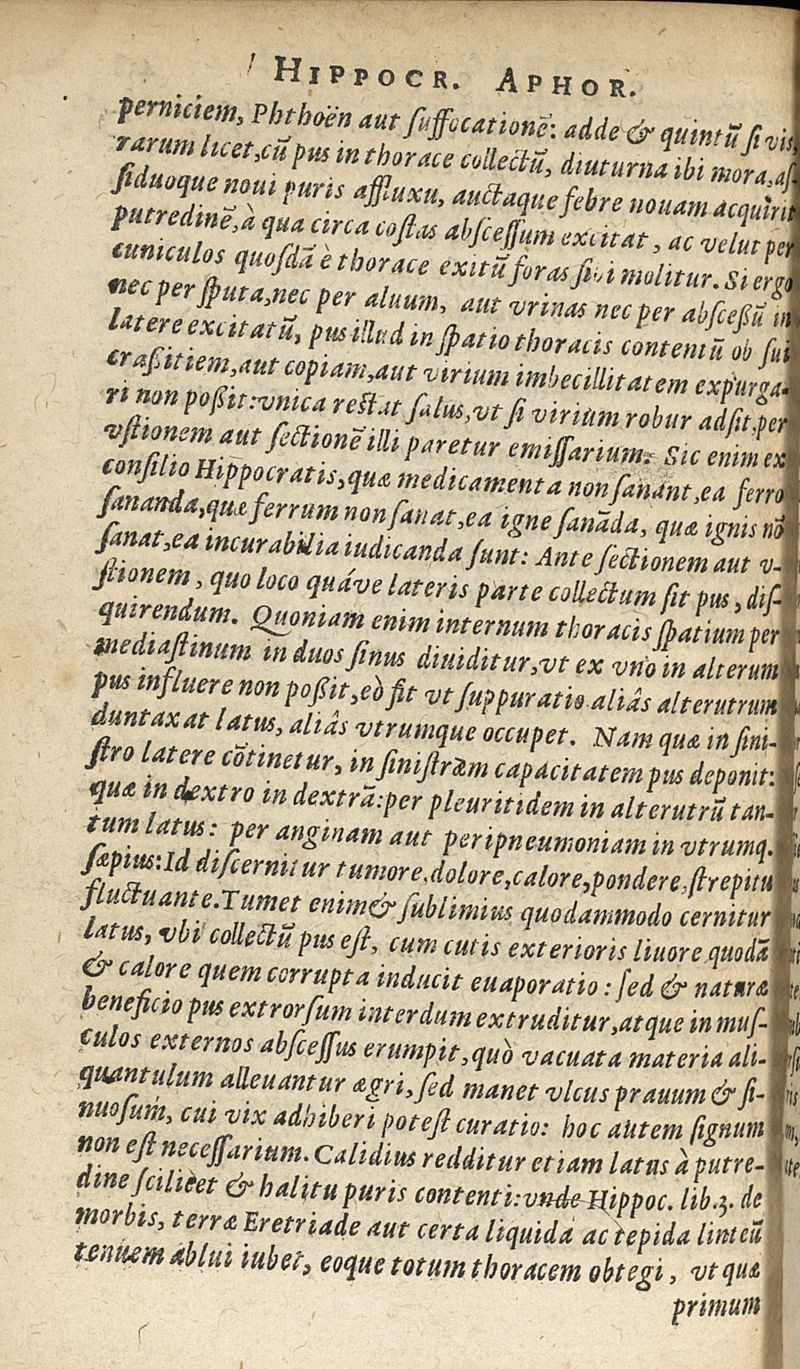 HIPPOCR. APHOR.
perniciem, Phthoën aut ſuffocationē: adde & quintū ſi vis,
rarum licet, cū pus in thorace collectū, diuturna ibi mora, aſ
ſiduoque noui puris affluxu, auctaque febre nouam acquirit
putredinē, à qua circa coſtas abſceſſum excitat, ac velut per
cuniculos quoſdā è thorace exitū foras ſibi molitur. Si ergo
nec per ſputa, nec per aluum, aut vrinas nec per abſceßū in
latere excitatū, pus illud in ſpatio thoracis contentū ob ſui
craßitiem, aut copiam, aut virium imbecillitatem expurga-
ri non poßit: vnica reſtat ſalus, vt ſi virium robur adſit, per
vſtionem aut ſectionē illi paretur emiſſarium. Sic enim ex
conſilio Hippocratis, quæ medicamenta non ſanant, ea ferro
ſananda, quæ ferrum non ſanat, ea igne ſanāda, quæ ignis nō
ſanat, ea incurabilia iudicanda ſunt: Ante ſectionem aut v-
ſtionem, quo loco quáve lateris parte collectum ſit pus, diſ-
quirendum. Quoniam enim internum thoracis ſpatium per
mediaſtinum in duos ſinus diuiditur, vt ex vno in alterum
pus influere non poßit, eò fit vt ſuppuratio aliâs alterutrum
duntaxat latus, aliâs vtrumque occupet. Nam quæ in ſini-
ſtro latere cōtinetur, in ſiniſtram capacitatem pus deponit:
quæ in dextro in dextrā: per pleuritidem in alterutrū tan-
tum latus: per anginam aut peripneumoniam in vtrumq.
ſæpius: Id diſcernitur tumore, dolore, calore, pondere, ſtrepitu
fluctuante. Tumet enim & ſublimius quodammodo cernitur
latus, vbi collectū pus eſt, cum cutis exterioris liuore quodā
& calore quem corrupta inducit euaporatio: ſed & naturæ
beneficio pus extrorſum interdum extruditur, atque in muſ-
culos externos abſceſſus erumpit, quò vacuata materia ali-
quantulum alleuantur ægri, ſed manet vlcus prauum & ſi-
nuoſum, cui vix adhiberi poteſt curatio: hoc autem ſignum
non eſt neceſſarium. Calidius redditur etiam latus à putre-
dine ſcilicet & halitu puris contenti: vnde Hippoc. lib. 3. de
morbis, terræ Eretriade aut certa liquida ac tepida linteū
tenuem ablui iubet, eoque totum thoracem obtegi, vt quæ
primum